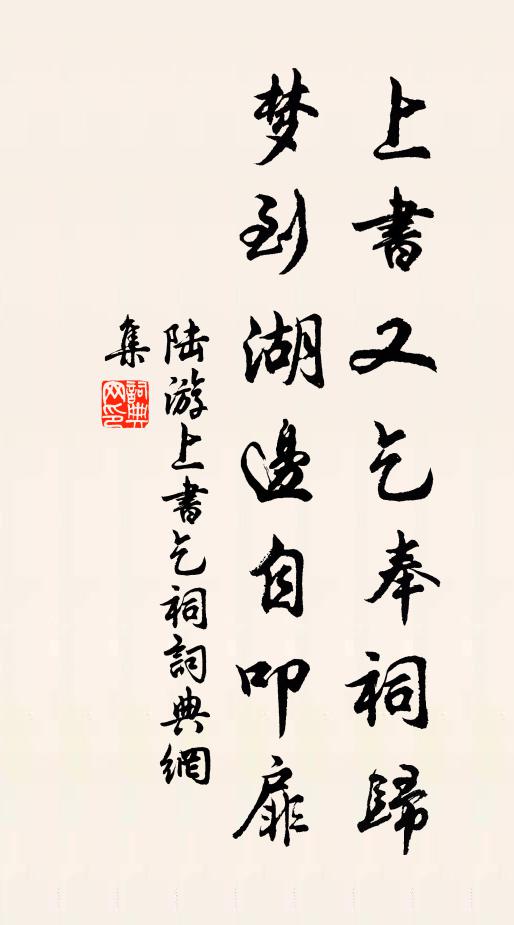 上書又乞奉祠歸
梦到湖邊自叩扉
陆游上書乞祠詞典網
集
詞典
网印